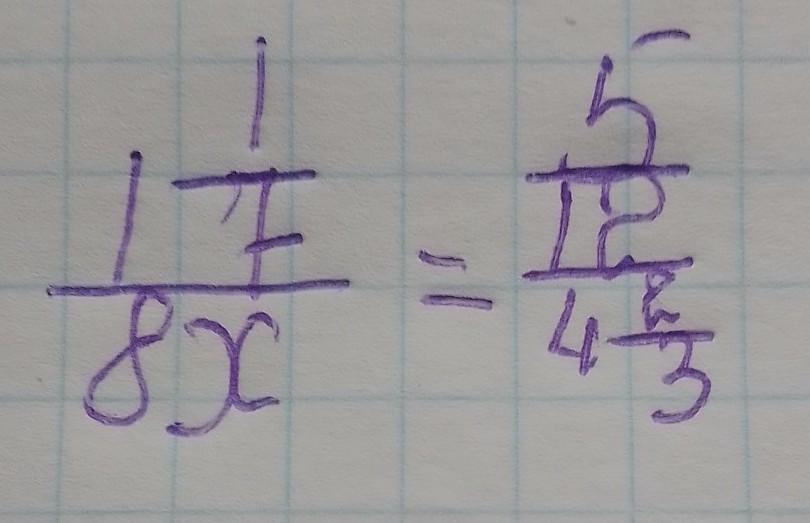 1 1/7 / 8x = 5/12 / 4 2/3